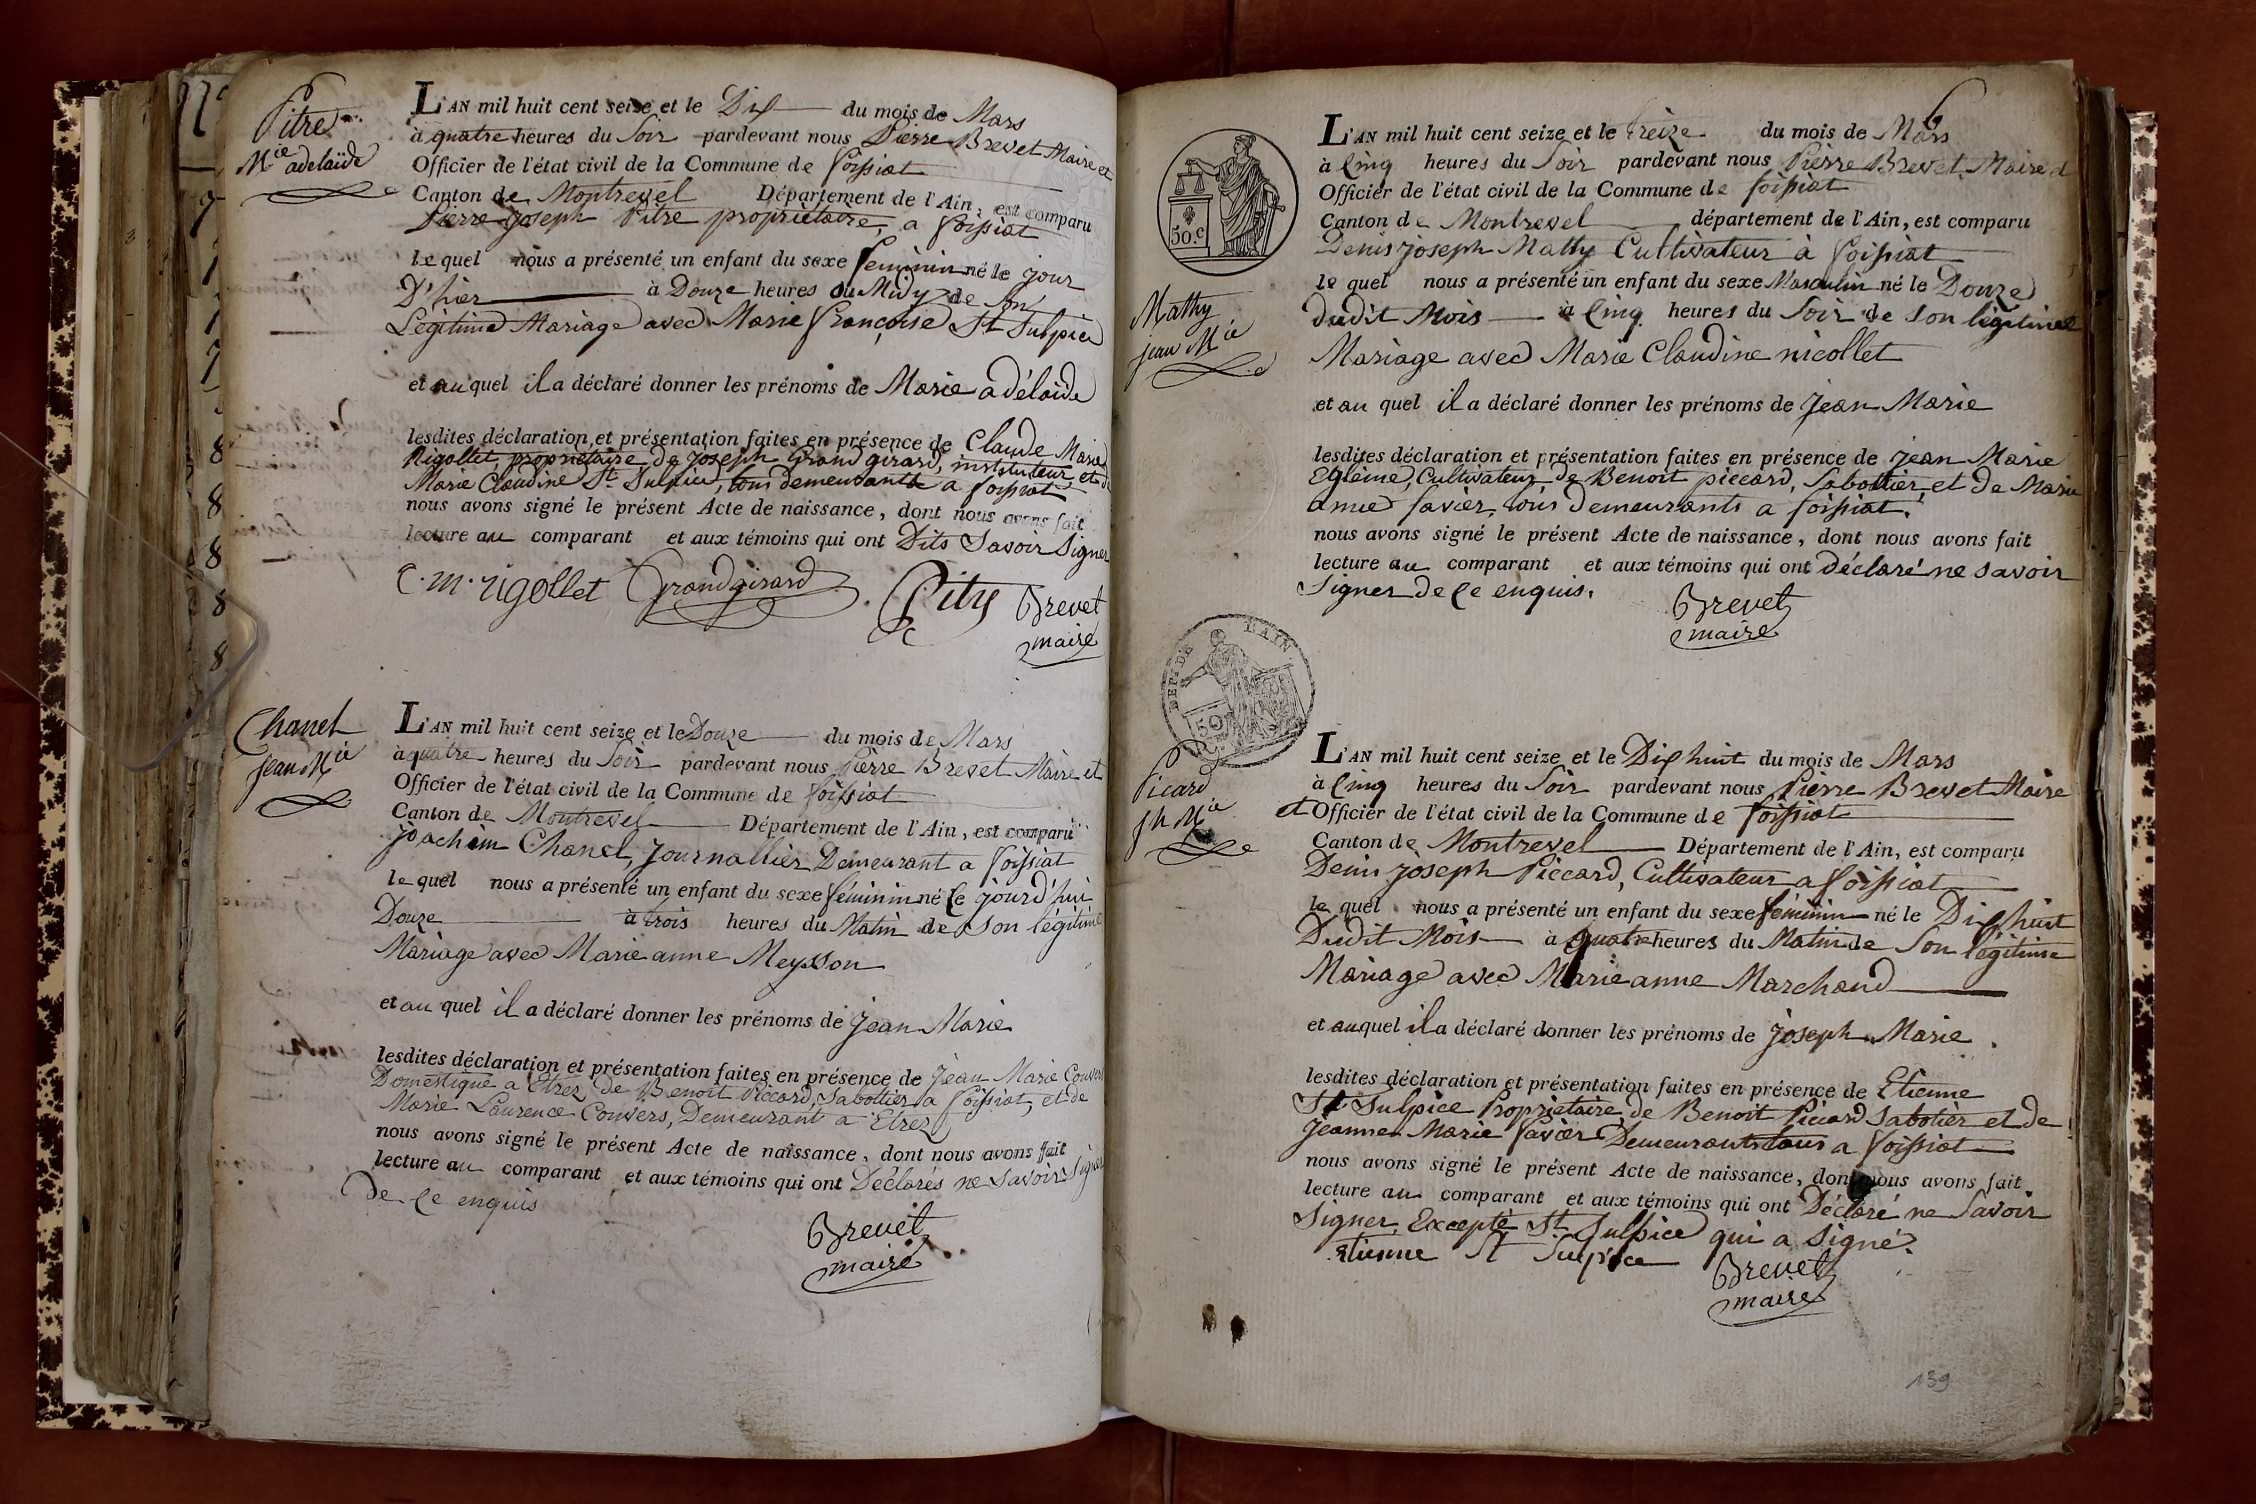 Pitre
Mie adelaïde
L'AN mil huit cent seize et le Dix du mois de Mars
à quatre heures du Soir pardevant nous Pierre Brevet Maire et
Officier de l'état civil de la Commune de foissiat
Canton de Montrevel Département de l'Ain, est comparu
Pierre Joseph Pitre propriétaire, a foissiat
le quel nous a présenté un enfant du sexe feminin né le jour
D'hier à Douze heures du Midy de son
Légitime Mariage avec Marie françoise St Sulpice
et au quel il a déclaré donner les prénoms de Marie adélaïde
lesdites déclaration et présentation faites en présence de Claude Marie
Rigollet, propriétaire de Joseph Grandgirard, instituteur, et de
Marie Claudine St Sulpice, tous demeurants a foissiat
nous avons signé le présent Acte de naissance, dont nous avons fait
lecture au comparant et aux témoins qui ont Dits Savoir Signer
C. m. rigollet Grandgirard Pitre Brevet
maire
Chanel
jean Mie
L'AN mil huit cent seize et le Douze du mois de Mars
à quatre heures du Soir pardevant nous Pierre Brevet Maire et
Officier de l'état civil de la Commune de foissiat
Canton de Montrevel Département de l'Ain, est comparu
joachim Chanel, Journallier Demeurant a foissiat
le quel nous a présenté un enfant du sexe féminin né Ce jourd'hui
Douze à trois heures du Matin de son légitime
Mariage avec Marie anne Meysson
et au quel il a déclaré donner les prénoms de Jean Marie
lesdites déclaration et présentation faites en présence de Jean Marie Convers
Domestique a Etrez de Benoit Piccard, Sabottier a foissiat, et de
Marie Laurence Convers, Demeurant a Etrez
nous avons signé le présent Acte de naissance, dont nous avons fait
lecture au comparant et aux témoins qui ont Déclarés ne Savoir Signer
De Ce enquis
Brevet
maire
6
50.c
Mathy
jean Mie
L'AN mil huit cent seize et le treize du mois de Mars
à Cinq heures du Soir pardevant nous Pierre Brevet Maire et
Officier de l'état civil de la Commune de foissiat
Canton de Montrevel département de l'Ain, est comparu
Denis joseph Mathy Cultivateur à foissiat
le quel nous a présenté un enfant du sexe Masculin né le Douze
dudit Mois à Cinq heures du Soir de son légitime
Mariage avec Marie Claudine nicollet
et au quel il a déclaré donner les prénoms de Jean Marie
lesdites déclaration et présentation faites en présence de jean Marie
Cultivateur, de Benoit piccard, Sabottier, et de Marie
anne favier, tous Demeurants a foissiat.
nous avons signé le présent Acte de naissance, dont nous avons fait
lecture au comparant et aux témoins qui ont déclaré ne savoir
Signer de Ce enquis.
Brevet
maire
DEP. DE L'AIN
50
Picard
jh Mie
L'AN mil huit cent seize et le Dix huit du mois de Mars
à Cinq heures du Soir pardevant nous Pierre Brevet Maire
et Officier de l'état civil de la Commune de foissiat
Canton de Montrevel Département de l'Ain, est comparu
Denis joseph Piccard, Cultivateur a foissiat
le quel nous a présenté un enfant du sexe féminin né le Dix huit
Dudit Mois à quatre heures du Matin de Son légitime
Mariage avec Marie anne Marchand
et au quel il a déclaré donner les prénoms de joseph Marie
lesdites déclaration et présentation faites en présence de Etienne
St Sulpice Propriétaire de Benoit Picard Sabotier et de
Jeanne Marie favier Demeurants tous a foissiat
nous avons signé le présent Acte de naissance, dont nous avons fait
lecture au comparant et aux témoins qui ont Déclaré ne Savoir
Signer, Excepté St Sulpice qui a Signé.
etienne St Sulpice Brevet
maire
139